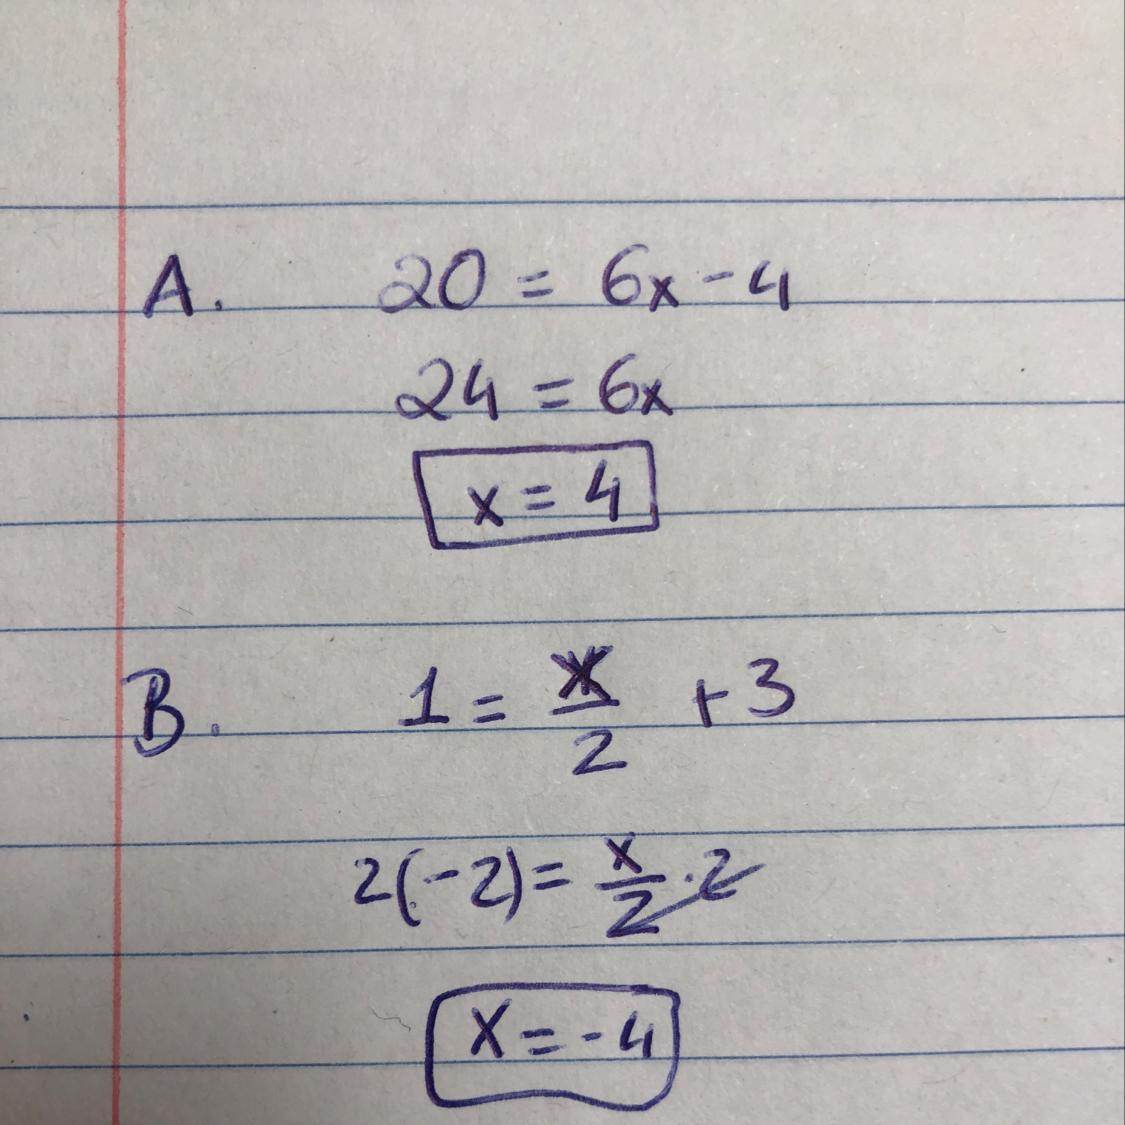 A. 20 = 6x - 4
24 = 6x
x = 4
B. 1 = x/2 + 3
2(-2) = x/2 · 2
x = -4